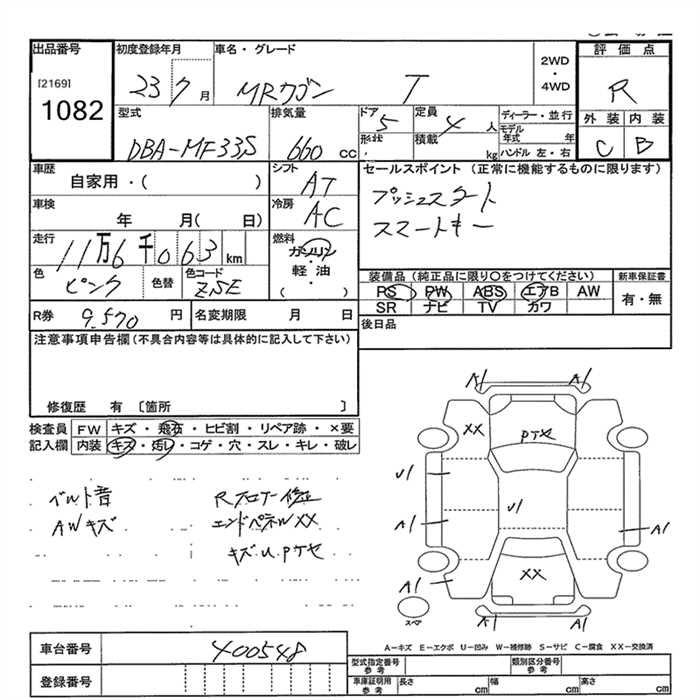 出品番号
[2169]
1082
初度登録年月
23 7 月
車名・グレード
MRワゴン T
2WD
・
4WD
評価点
R
外装 内装
C B
型式
DBA-MF33S
排気量
660 cc
ドア 5
形状
・
定員 4 人
積載 kg
ディーラー・並行
モデル年式 年
ハンドル 左・右
車歴
自家用・( )
シフト
AT
車検
年 月( 日)
冷房
AC
走行
11万6千063 km
燃料
ガソリン
・
軽油
( ・ )
色
ピンク
色替
色コード
ZSE
R券 9,570 円
名変期限 月 日
セールスポイント (正常に機能するものに限ります)
プッシュスタート
スマートキー
装備品(純正品に限り○をつけてください)
PS PW ABS エアB AW
SR ナビ TV カワ
新車保証書
有・無
後日品
注意事項申告欄(不具合内容等は具体的に記入して下さい)
修復歴 有 〔箇所 〕
検査員記入欄
FW キズ・飛石・ヒビ割・リペア跡・×要
内装 キズ・汚レ・コゲ・穴・スレ・キレ・破レ
ベルト音
AWキズ
Rフロアー修正
エンドパネルXX
キズ U Pケセ
A1 A1
XX
Pケセ
U1
U1
A1
A1
A1
XX
A1 A1
スペア
A－キズ E－エクボ U－凹み W－補修跡 S－サビ C－腐食 XX－交換済
車台番号
400548
登録番号
型式指定番号
参考
類別区分番号
参考
車庫証明用
参考
長さ cm
幅 cm
高さ cm